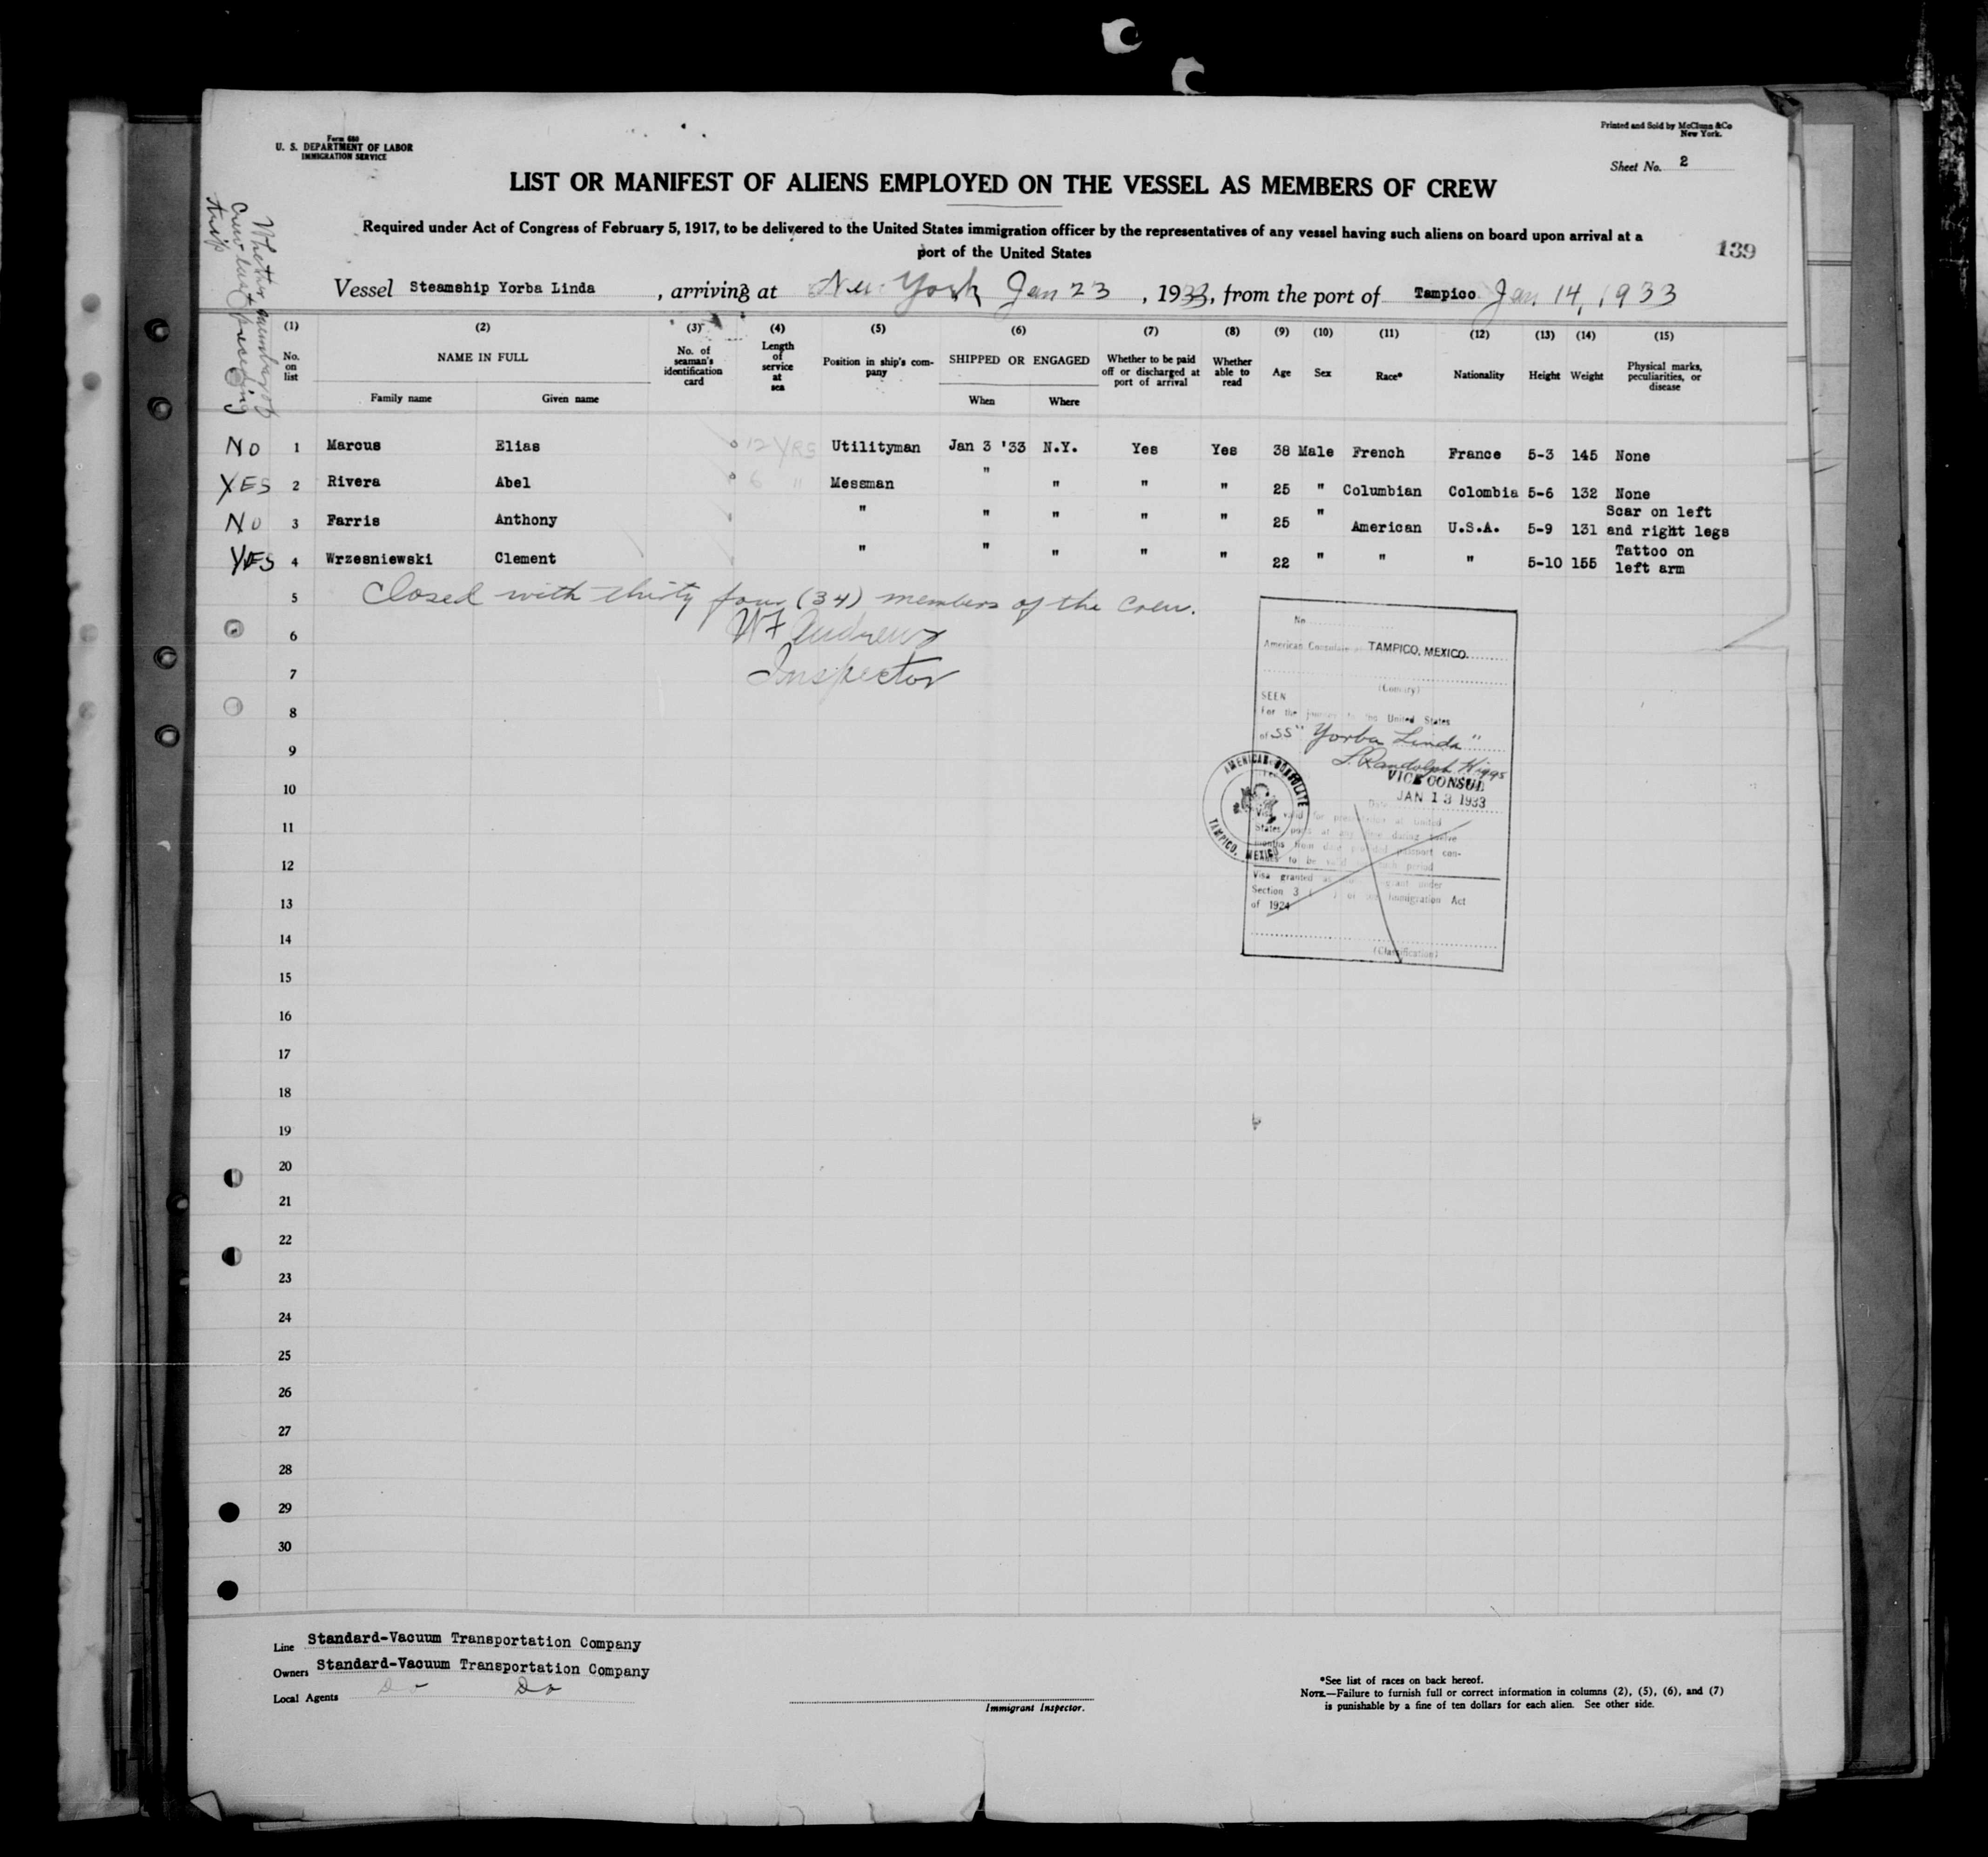 Form 680
U. S. DEPARTMENT OF LABOR
IMMIGRATION SERVICE
Printed and Sold by McClunn &Co
New York.
Sheet No. 2
LIST OR MANIFEST OF ALIENS EMPLOYED ON THE VESSEL AS MEMBERS OF CREW
Required under Act of Congress of February 5, 1917, to be delivered to the United States immigration officer by the representatives of any vessel having such aliens on board upon arrival at a
port of the United States
139
Vessel Steamship Yorba Linda , arriving at New York Jan 23 , 1933, from the port of Tampico Jan 14, 1933
Whether member of
crew last preceding
trip
(1) (2) (3) (4) (5) (6) (7) (8) (9) (10) (11) (12) (13) (14) (15)
No. on list NAME IN FULL Family name Given name No. of seaman's identification card Length of service at sea Position in ship's company SHIPPED OR ENGAGED When Where Whether to be paid off or discharged at port of arrival Whether able to read Age Sex Race* Nationality Height Weight Physical marks, peculiarities, or disease
No 1 Marcus Elias 12 YRS Utilityman Jan 3 '33 N.Y. Yes Yes 38 Male French France 5-3 145 None
YES 2 Rivera Abel 6 " Messman " " " " 25 " Columbian Colombia 5-6 132 None
No 3 Farris Anthony " " " " " 25 " American U.S.A. 5-9 131 Scar on left and right legs
YES 4 Wrzesniewski Clement " " " " " 22 " " " 5-10 155 Tattoo on left arm
5 Closed with thirty four (34) members of the crew.
6 WF Andrews
7 Inspector
8
9
10
11
12
13
14
15
16
17
18
19
20
21
22
23
24
25
26
27
28
29
30
No
American Consulate at TAMPICO, MEXICO.
(Country)
SEEN
For the journey to the United States
of SS "Yorba Linda"
L. Randolph Higgs
VICE CONSUL
Date JAN 13 1933
Visa valid for presentation at United
States ports at any time during twelve
months from date provided passport con-
tinues to be valid such period
Visa granted as grant under
Section 3 ( ) of the Immigration Act
of 1924
(Classification)
AMERICAN CONSULATE
TAMPICO, MEXICO
Line Standard-Vacuum Transportation Company
Owners Standard-Vacuum Transportation Company
Local Agents Do Do
Immigrant Inspector.
*See list of races on back hereof.
NOTE.—Failure to furnish full or correct information in columns (2), (5), (6), and (7)
is punishable by a fine of ten dollars for each alien. See other side.